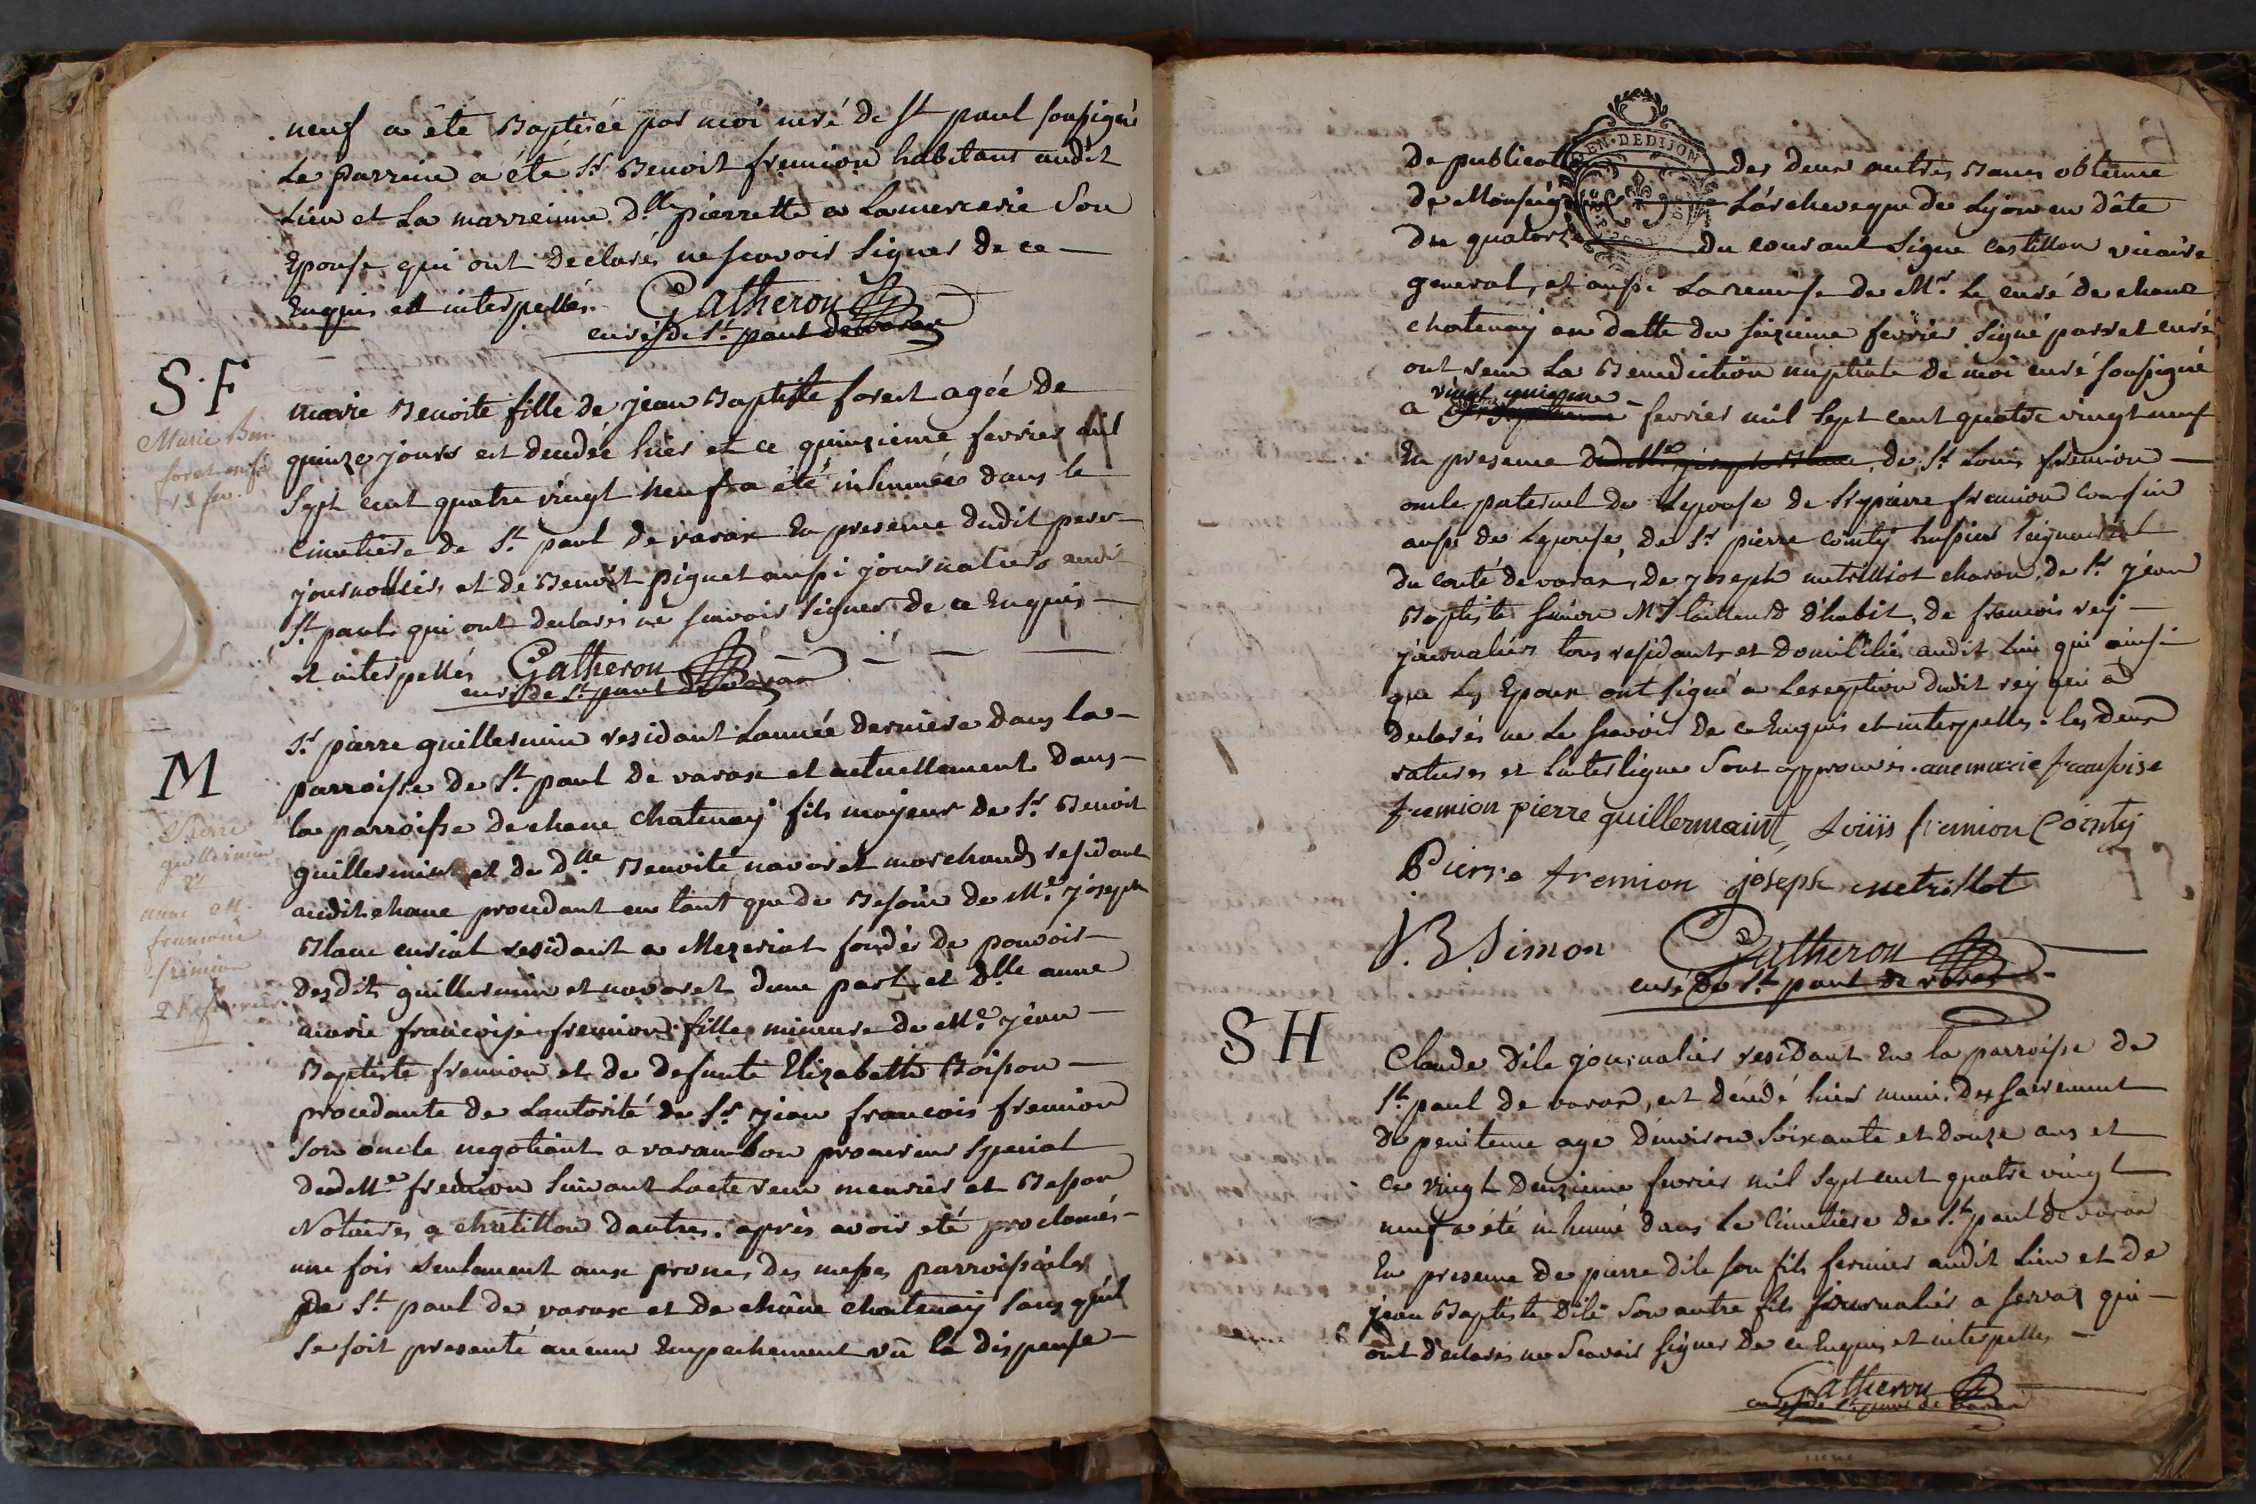 neuf a été Baptisée par moi curé de St paul soussigné
Le parrein a été Sr Benoit fremion habitant audit
Lieu et La marreinne dlle pierrette a Lamercerie Son
Epouse qui ont declarés ne scavoir signer de ce
Enquis et interpellés. Gatheron
curé de St. paul de varax
S. F
Marie Ben.
foret
15 fev.
marie Benoite fille de jean Baptiste foret agée de
quinze jours est decedée hier et ce quinzieme fevrier mil
Sept cent quatre vingt neuf a été inhumée dans le
Cimetière de St. paul de varax En presence dudit pere
journallier, et de Benoit piguet aussi journaliers audit
St paul, qui ont declarés ne scavoir signer de ce Enquis
et interpellés Gatheron
curé de St. paul de varax
M
Pierre
guillermin
et
anne M.
francoise
fremion
Sr pierre guillermin residant Lannée derniere dans la
parroisse de St. paul de varax et actuellement dans
la parroisse de chane Chatenay fils majeur de Sr Benoit
guillermin et de dlle Benoite navoret marchands residant
audit chane procedant en tant que de Besoin de Me joseph
Blanc curial residant a Mezeriat fondés de pouvoir
desdits guillermin et navoret dune part, et dlle anne
marie francoise fremion fille mineure de Me jean
Baptiste fremion et de defunte Elizabeth Boisson
procedante de Lautorité de Sr jean francois fremion
son oncle negotiant a varambon procureur special
dud Me fremion suivant Lacte reçu mercier et
Notaires a chatillon dautre. après avoir été proclamés
une fois seulement aux prones des messes parroissiales
de St. paul de varax et de chane chatenay sans qu'il
se soit presenté aucun Empechement vû la dispense
GEN. DE DIJON
de publication des deux autres Bans obtenue
de Monseigneur Lárcheveque de Lyon en dâte
du quatorze du courant signé castillon vicaire
general, et aussi La remise de Mr. Le curé de chane
chatenay en datte du seizieme fevrier signé passet curé
ont reçu La Benediction nuptiale de moi curé soussigné
vingt unieme
a fevrier mil sept cent quatre vingt neuf
En presence dud Me joseph Blanc, de Sr Louis fremion
oncle paternel de Lepouse de Sr pierre fremion cousin
aussi de Lepouse, de Sr pierre cointy huissier
du conté de varax, de joseph metrillot charon, de Sr jean
Baptiste simon Me tailleur d'habit, de francois rey
journalier tous residants et domiciliés audit Lieu qui ainsi
que Les Epoux ont signé a Lexeption dudit rey qui a
declarés ne Le scavoir de ce Enquis et interpellés. les deux
ratures et Linterligne sont approuvés. anemarie fransoise
fremion pierre guillermaint, Loüis fremion Cointy
Pierre fremion joseph metrillot
J. B Simon Gatheron
curé de St. paul de varax
S H
Claude Dile journalier residant En la parroisse de
St. paul de varax, est décédé hier muni des sacrement
de penitence agé d'environ soixante et douze ans et
ce vingt deuzieme fevrier mil sept cent quatre vingt
neuf a été inhumé dans Le Cimetiere de St. paul de varax
En presence de pierre dile son fils fermier audit Lieu et de
jean Baptiste Dile son autre fils journalier a servaz qui
ont declarés ne scavoir signer de ce Enquis et interpellés
Gatheron
curé de St. paul de varax